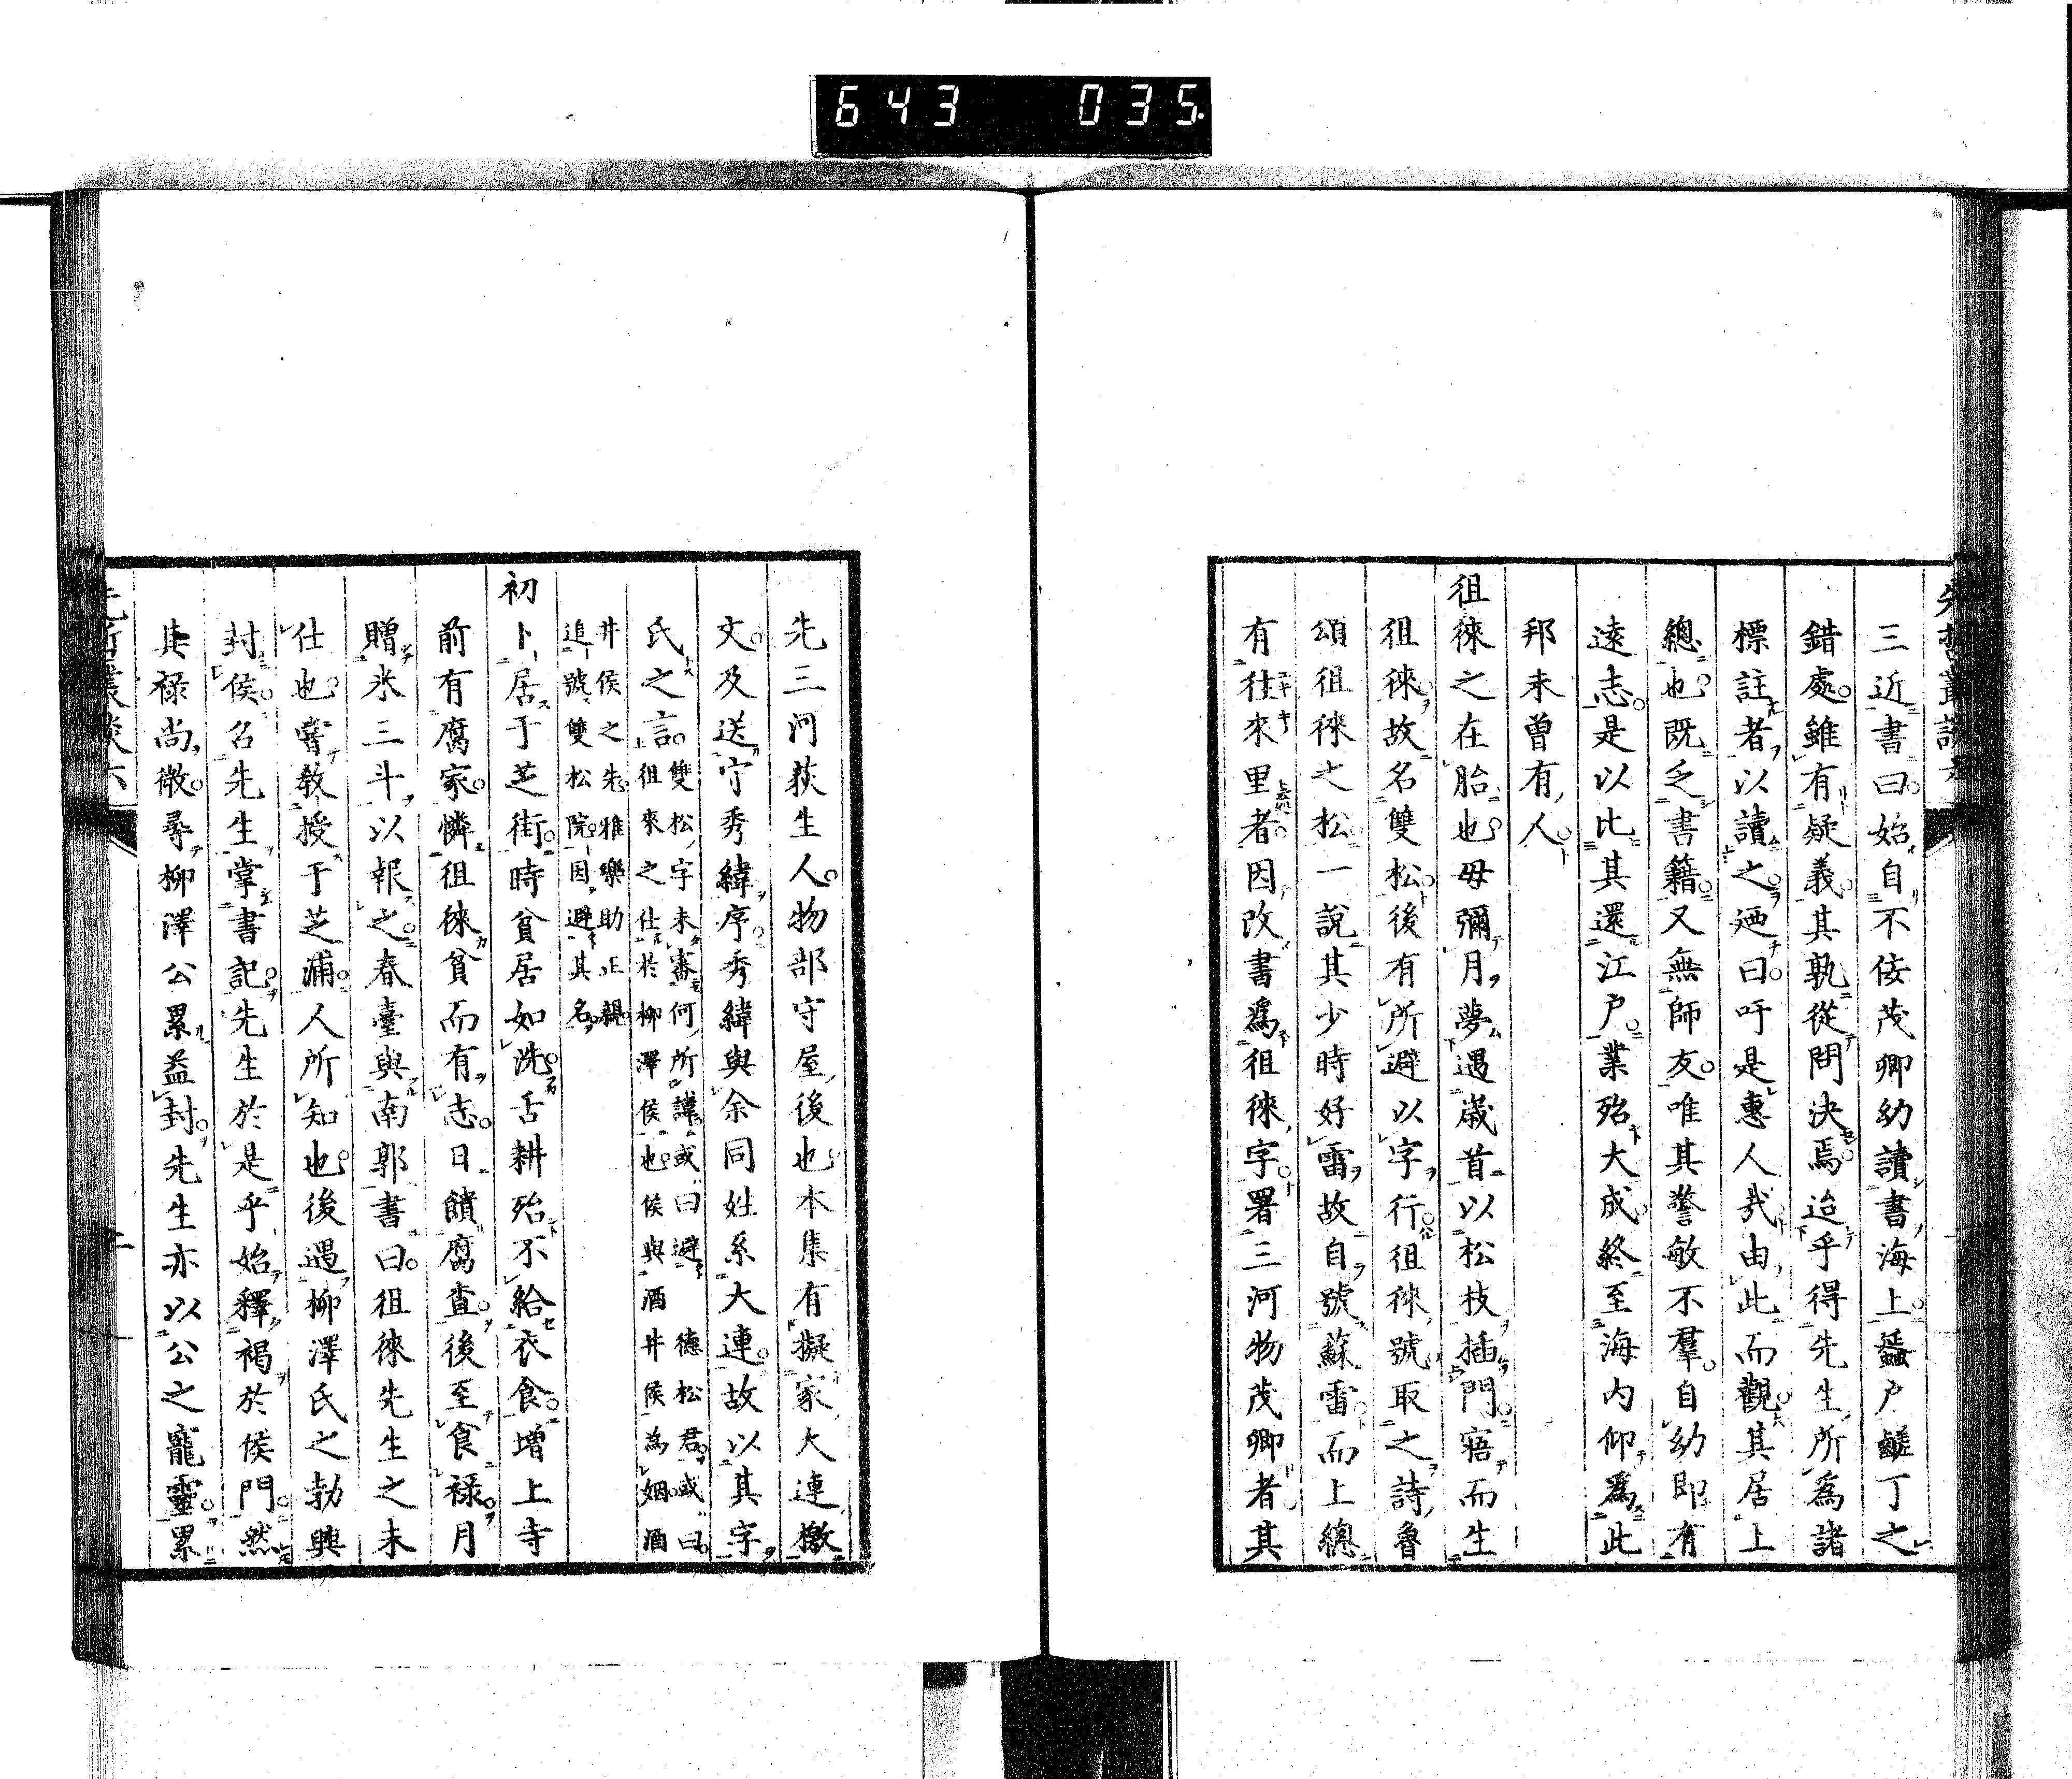 643 035
三近書曰始自不佞茂卿幼讀書海上蜑戶鹺丁之
錯處雖有疑義其孰從問決焉迨乎得先生所爲諸
標註者以讀之迺曰吁是惠人哉由此而觀其居上
總也既乏書籍又無師友唯其警敏不羣自幼即有
遠志是以比其還江戶業殆大成終至海內仰爲此
邦未曾有人
徂徠之在胎也母彌月夢遇歲首以松枝插門寤而生
徂徠故名雙松後有所避以字行徂徠號取之詩魯
頌徂徠之松一說其少時好雷故自號蘇雷而上總
有往來里者因改書爲徂徠字署三河物茂卿者其
先三河荻生人物部守屋後也本集有擬家大連檄
文及送守秀緯序秀緯與余同姓系大連故以其字
氏之言雙松字未審何所諱或曰避 德松君或曰
上徂來之仕於柳澤侯也侯與酒井侯為姻酒
井侯之先雅樂助正親
追號雙松院因避其名
初卜居于芝街時貧居如洗舌耕殆不給衣食增上寺
前有腐家憐徂徠貧而有志日饋腐查後至食祿月
贈米三斗以報之春臺與南郭書曰徂徠先生之未
仕也嘗教授于芝浦人所知也後遇柳澤氏之勃興
封侯召先生掌書記先生於是乎始釋褐於侯門然
其祿尚微尋柳澤公累益封先生亦以公之寵靈累